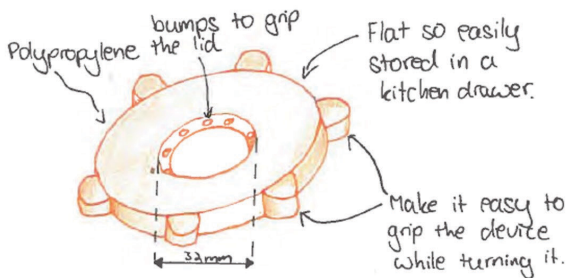 Polypropylene
bumps to grip
the lid
Flat so easily
stored in a
kitchen drawer.
Make it easy to
grip the device
while turning it.
32mm